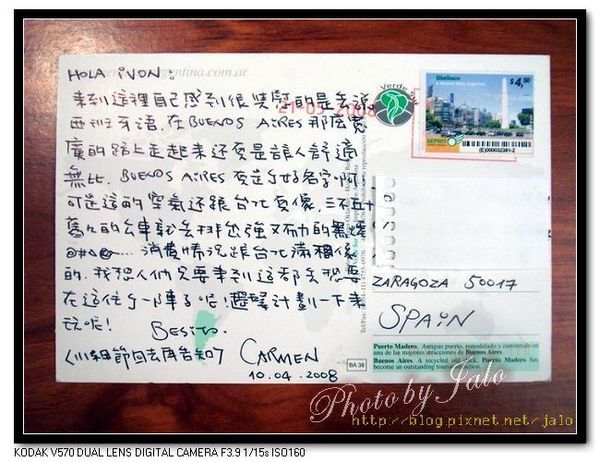 HOLA iVON:
來到這裡自己感到很獎賞的是去說
西班牙語. 在 BUENOS AIRES 那麼寬
廣的路上走起來還真是讓人舒適
無比. BUENOS AIRES 真是個好名字啊!
可是這的空氣還跟台北真像,三不五十
舊舊的公車就去排出強又有力的黑煙
@#&@⋯⋯ 消費情況跟台北滿相像
的. 我想人們只要來到這都會想要
在這住個一陣子吧! 趕緊計劃一下來
玩啦!
BESITO.
(細節回去再告知)
CARMEN
10.04.2008
gentina.com.ar
Verde
Obelisco
Buenos Aires, Argentina
$4,50
(E)000032361-2
ZARAGOZA 50017
SPAiN
Puerto Madero. Antiguo puerto, remodelado y convertido en
una de las mayores atracciones de Buenos Aires
Buenos Aires. A recycled old dock, Puerto Madero has
become an outstanding tourist attraction
BA 38
Photo by Jalo
http://blog.pixnet.net/jalo
KODAK V570 DUAL LENS DIGITAL CAMERA F3.9 1/15s ISO160